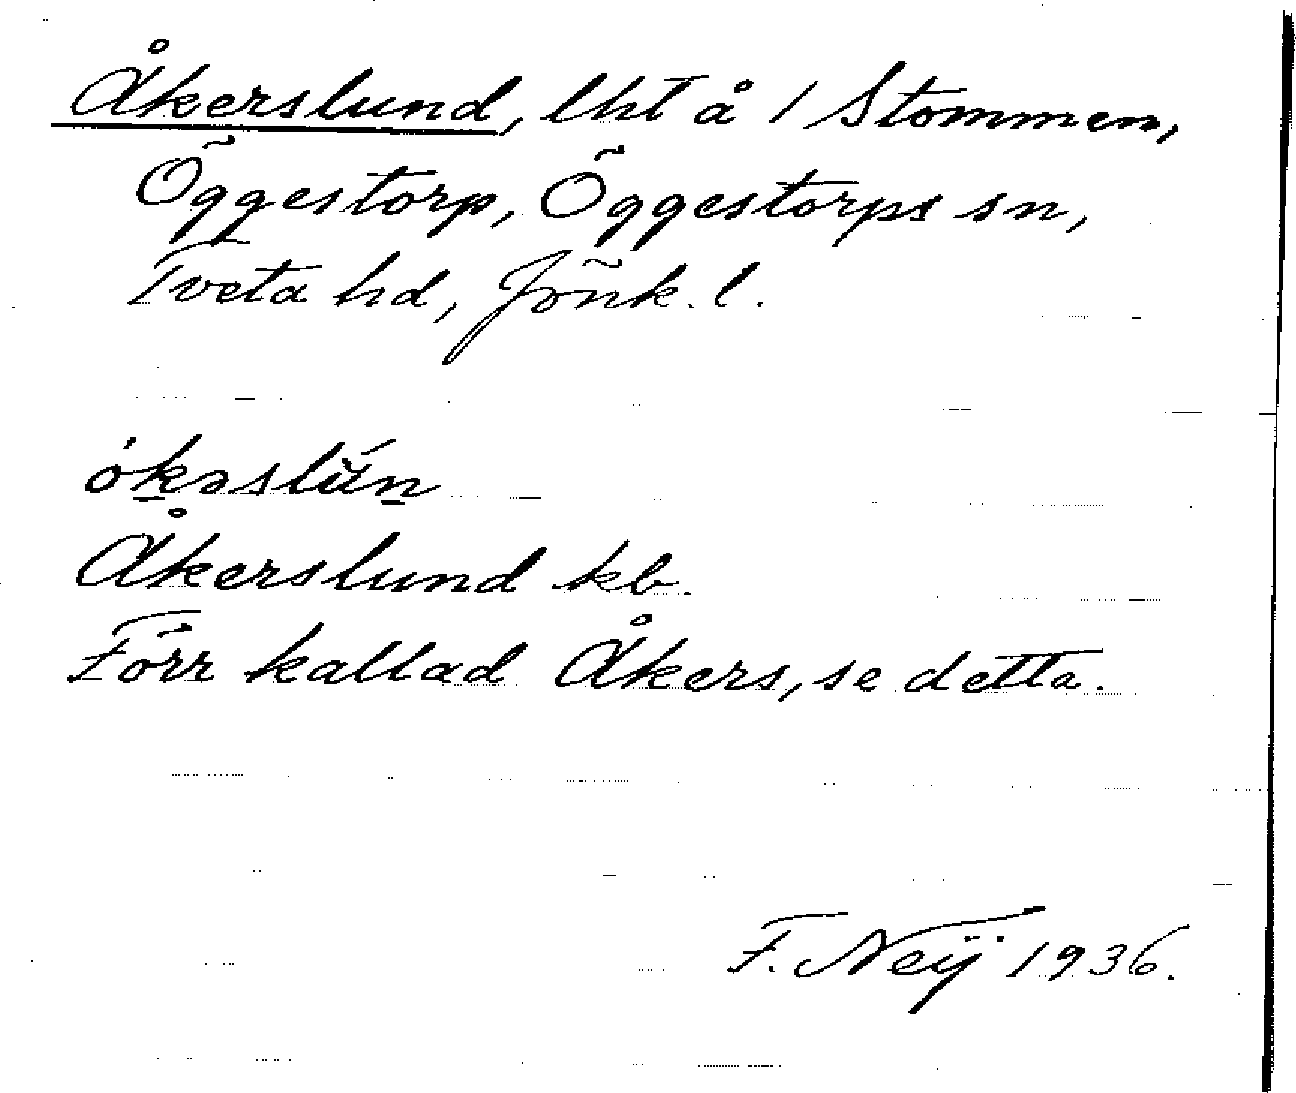 Åkerslund, lht å 1 Stommen,
Öggestorp, Öggestorps sn,
Tveta hd, Jönk. l.
Åkerslund kb.
Förr kallad Åkers, se detta.
F. Neij 1936.